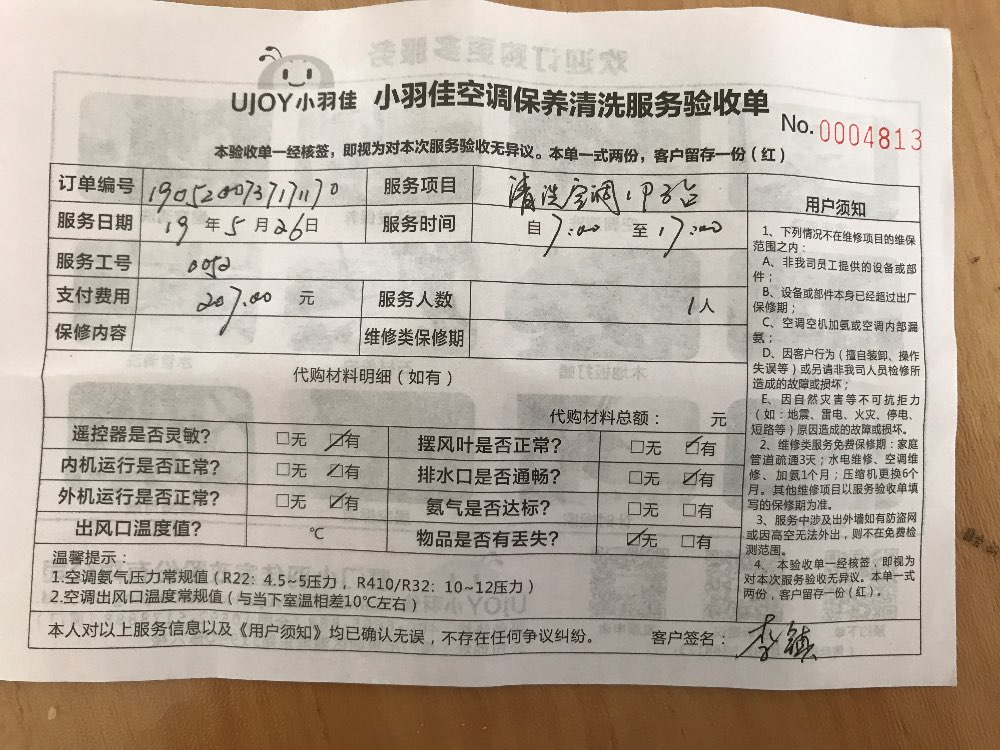 UJOY小羽佳 小羽佳空调保养清洗服务验收单
No. 0004813
本验收单一经核签，即视为对本次服务验收无异议。本单一式两份，客户留存一份（红）
订单编号 服务项目 清洗空调
服务日期 19 年 5 月 26 日 服务时间 自 7:00 至 17:00
服务工号 0052
支付费用 207.00 元 服务人数 1 人
保修内容 维修类保修期
代购材料明细（如有）
代购材料总额： 元
遥控器是否灵敏？ □无 ☑有 摆风叶是否正常？ □无 ☑有
内机运行是否正常？ □无 ☑有 排水口是否通畅？ □无 ☑有
外机运行是否正常？ □无 ☑有 氨气是否达标？ □无 □有
出风口温度值？ ℃ 物品是否有丢失？ ☑无 □有
温馨提示：
1.空调氨气压力常规值（R22：4.5~5压力，R410/R32：10~12压力）
2.空调出风口温度常规值（与当下室温相差10℃左右）
本人对以上服务信息以及《用户须知》均已确认无误，不存在任何争议纠纷。 客户签名： 李镇
用户须知
1、下列情况不在维修项目的维保
范围之内：
A、非我司员工提供的设备或部
件；
B、设备或部件本身已经超过出厂
保修期；
C、空调空机加氨或空调内部漏
氨；
D、因客户行为（擅自装卸、操作
失误等）或另请非我司人员检修所
造成的故障或损坏；
E、因自然灾害等不可抗拒力
（如：地震、雷电、火灾、停电、
短路等）原因造成的故障或损坏。
2、维修类服务免费保修期：家庭
管道疏通3天；水电维修、空调维
修、加氨1个月；压缩机更换6个
月。其他维修项目以服务验收单填
写的保修期为准。
3、服务中涉及出外墙如有防盗网
或因高空无法外出，则不在免费检
测范围。
4、本验收单一经核签，即视为
对本次服务验收无异议。本单一式
两份，客户留存一份（红）。